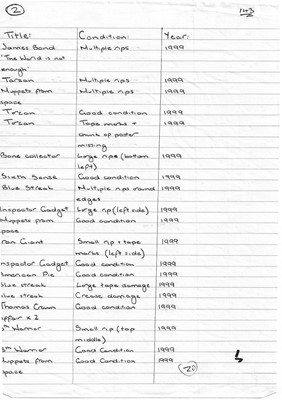 2
Title: Condition: Year:
James Bond Multiple rips 1999
'The World is not
enough'
Tarzan Multiple rips 1999
Muppets from Multiple rips 1999
space
Tarzan Good condition 1999
Tarzan Tape marks + 1999
chunk of poster
missing
Bone collector Large rips (bottom 1999
left)
Sixth Sense Good condition 1999
Blue Streak Multiple rips round 1999
edges
Inspector Gadget Large rip (left side) 1999
Muppets from Good condition 1999
pace
ron Giant Small rip + tape 1999
marks (left side)
nspector Gadget Good condition 1999
American Pie Good condition 1999
lue streak Large tape damage 1999
lue streak Crease damage 1999
Thomas Crown Good condition 1999
x 2
3th Warrior Small rip (top 1999
middle)
3th Warrior Good Condition 1999
Muppets from Good Condition 1999
space
20